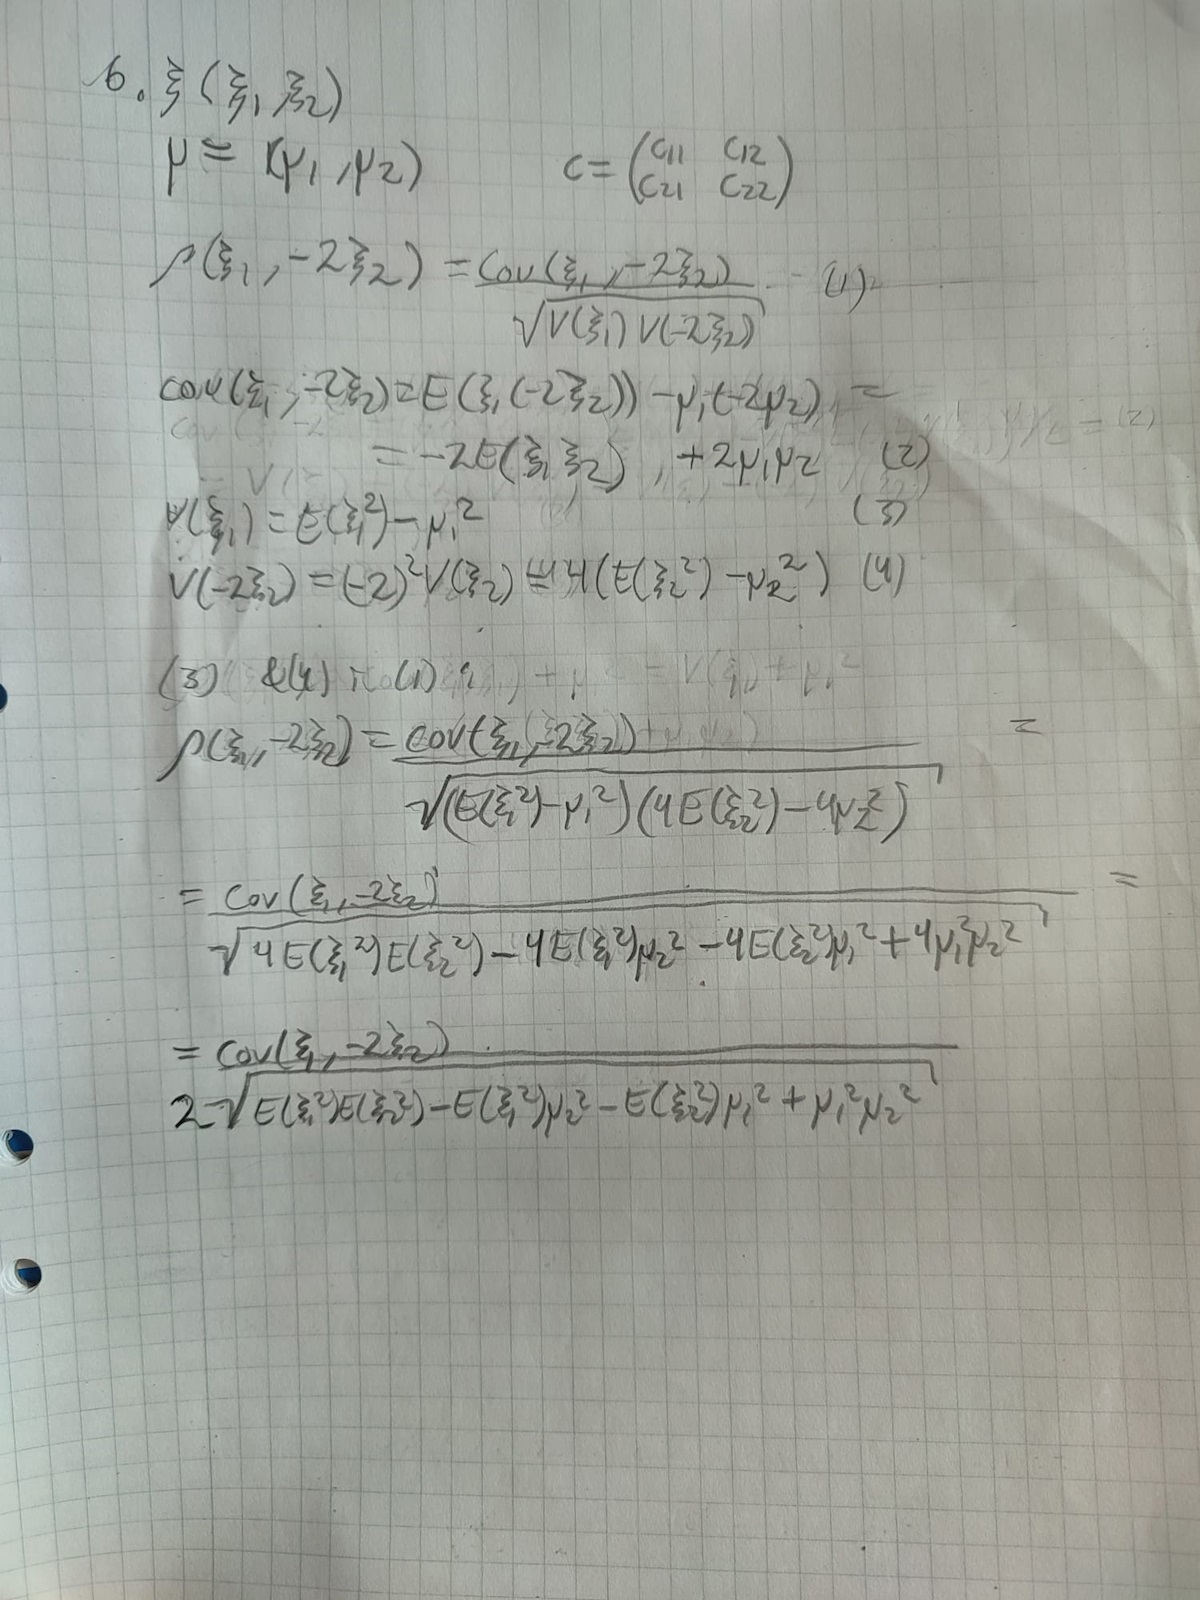 6. ξ(ξ₁, ξ₂)
μ = (μ₁, μ₂)    C = (C₁₁ C₁₂
C₂₁ C₂₂)
ρ(ξ₁, -2ξ₂) = Cov(ξ₁, -2ξ₂) / √(V(ξ₁) V(-2ξ₂)) (1)
cov(ξ₁, -2ξ₂) = E(ξ₁(-2ξ₂)) - μ₁(-2μ₂) =
= -2E(ξ₁ξ₂) + 2μ₁μ₂ (2)
V(ξ₁) = E(ξ₁²) - μ₁² (3)
V(-2ξ₂) = (-2)²V(ξ₂) = 4(E(ξ₂²) - μ₂²) (4)
(3) & (4) i (1)
ρ(ξ₁, -2ξ₂) = cov(ξ₁, -2ξ₂) / √((E(ξ₁²) - μ₁²)(4E(ξ₂²) - 4μ₂²)) =
= cov(ξ₁, -2ξ₂) / √(4E(ξ₁²)E(ξ₂²) - 4E(ξ₁²)μ₂² - 4E(ξ₂²)μ₁² + 4μ₁²μ₂²) =
= cov(ξ₁, -2ξ₂) / 2√(E(ξ₁²)E(ξ₂²) - E(ξ₁²)μ₂² - E(ξ₂²)μ₁² + μ₁²μ₂²)